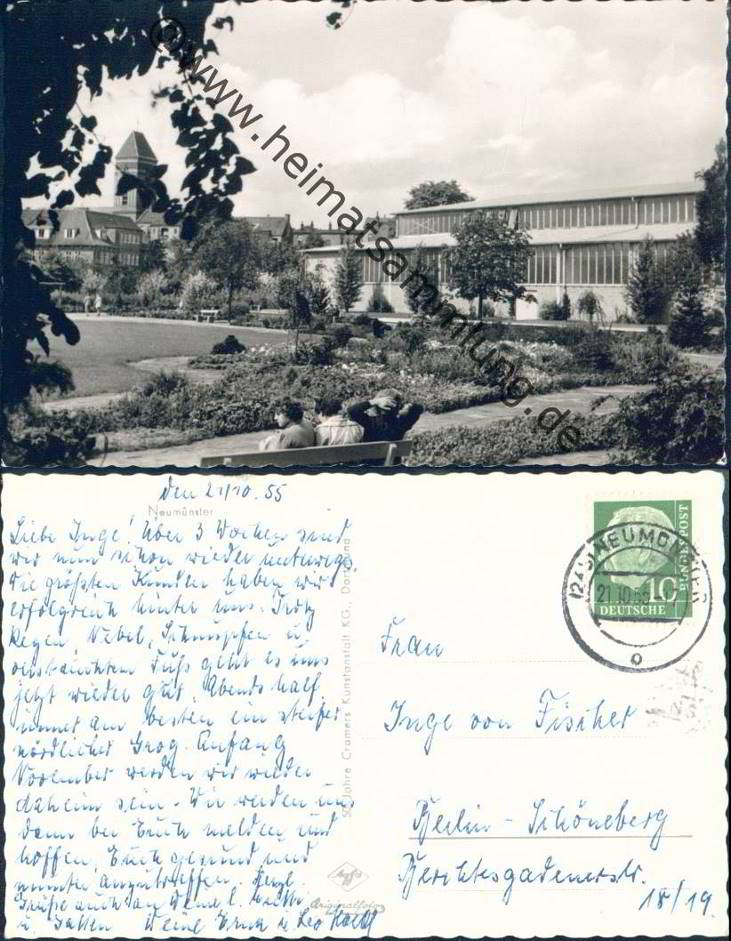 © www.heimatsammlung.de
den 21/10.55
Neumünster
Liebe Inge! Über 3 Wochen sind
wir nun schon wieder unterwegs.
Die größten Kunden haben wir
erfolgreich hinter uns. Trotz
Regen, Nebel, Schnupfen u.
verstauchtem Fuß geht es uns
jetzt wieder gut. Abends half
immer am besten ein steifer
nördlicher Grog. Anfang
November werden wir wieder
daheim sein. Wir werden uns
dann bei Euch melden und
hoffen, Euch gesund und
munter anzutreffen. Herzl.
Grüße auch an Deine l.
u. Gatten Deine Erna u. Leo
50 Jahre Cramers Kunstanstalt KG., Dortmund
Agfa
Originalfoto
NEUMÜNSTER
21.10.55
10
DEUTSCHE
BUNDESPOST
Frau
Inge von Fischer
Berlin-Schöneberg
Berchtesgadenerstr.
18/19.